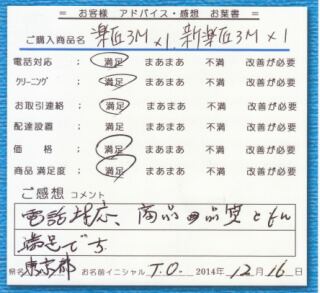 = お客様 アドバイス・感想 お葉書 =
ご購入商品名 楽匠3M×1, 新楽匠3M×1
電話対応 ; 満足 まあまあ 不満 改善が必要
クリーニング ; 満足 まあまあ 不満 改善が必要
お取引連絡 ; 満足 まあまあ 不満 改善が必要
配達設置 ; 満足 まあまあ 不満 改善が必要
価格 ; 満足 まあまあ 不満 改善が必要
商品満足度 ; 満足 まあまあ 不満 改善が必要
ご感想 コメント
電話対応、商品の品質ともに
満足です
県名 東京都 お名前イニシャル T.O. 2014年 12月 16日